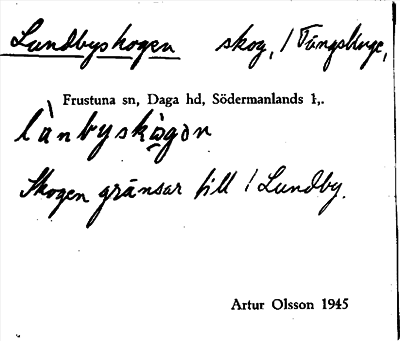 Lundbyskogen skog, / Tängsluge,
Frustuna sn, Daga hd, Södermanlands l,.
lànbyskògən
Skogen gränsar till / Lundby.
Artur Olsson 1945